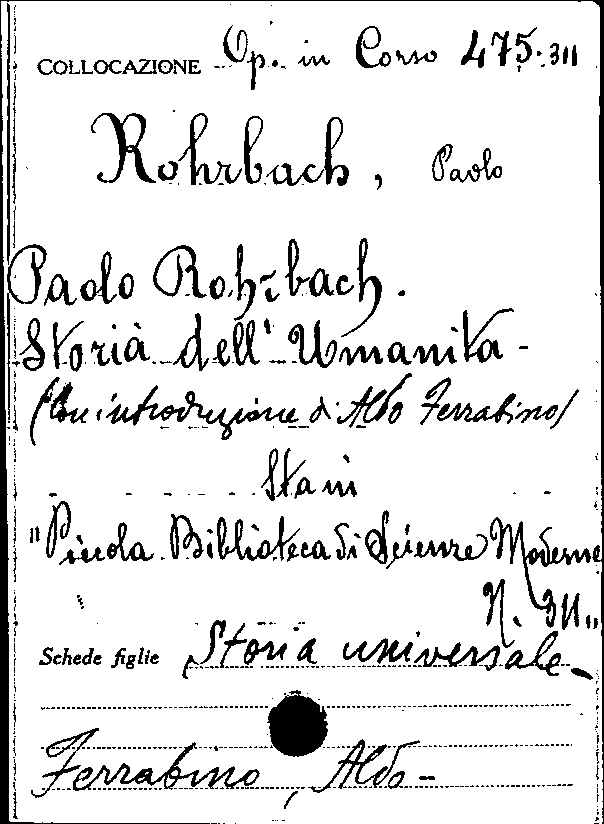 COLLOCAZIONE Op. in Corso 475.311
Rohrbach, Paolo
Paolo Rohrbach.
Storia dell' Umanità -
(Con introduzione di Aldo Ferrabino)
Sta in
"Piccola Biblioteca di Scienze Moderne
N. 311"
Schede figlie Storia universale -
Ferrabino, Aldo -